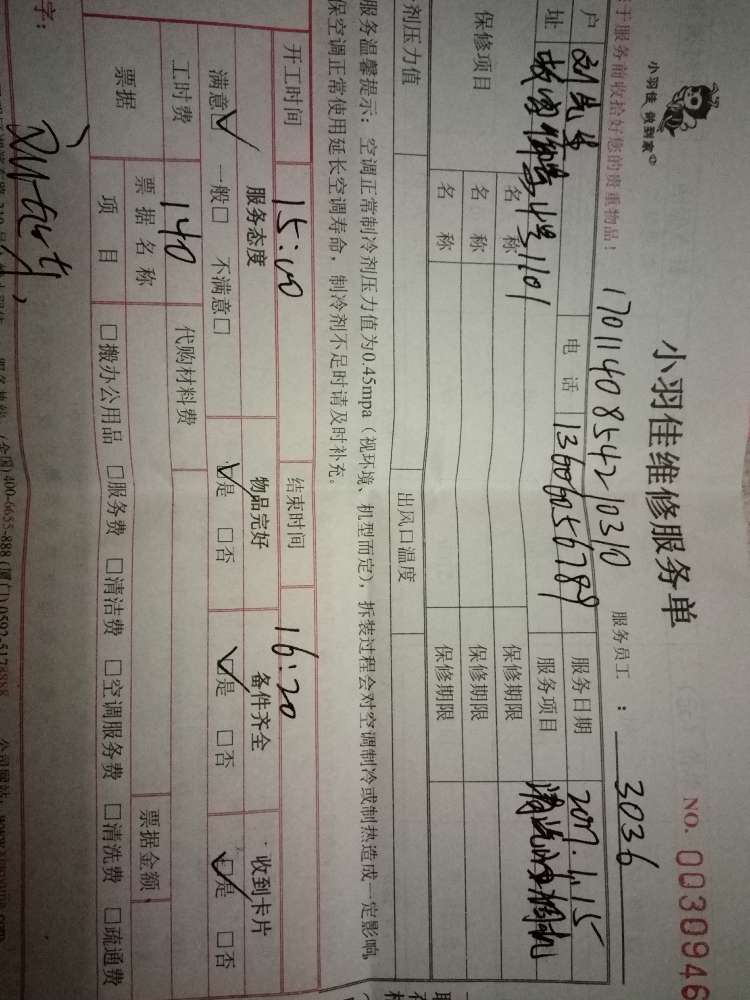 小羽佳 做到家
小羽佳维修服务单
NO. 0030946
于服务前收拾好您的贵重物品！
17011408542 10310
服务员工：3036
户 刘先生 电话 13606056789 服务日期 2017.1.15
址 1101 服务项目
保修项目 名称 保修期限
名称 保修期限
名称 保修期限
剂压力值 出风口温度
服务温馨提示：空调正常制冷剂压力值为0.45mpa（视环境、机型而定），拆装过程会对空调制冷或制热造成一定影响
保空调正常使用延长空调寿命，制冷剂不足时请及时补充。
开工时间 15:00 结束时间 16:20
服务态度 物品完好 备件齐全 收到卡片
满意☑ 一般□ 不满意□ ☑是 □否 ☑是 □否 ☑是 □否
工时费 140 代购材料费
票据 票据名称 票据金额
项目 □搬办公用品 □服务费 □清洁费 □空调服务费 □清洗费 □疏通费
字：
(全国)400-6655-888